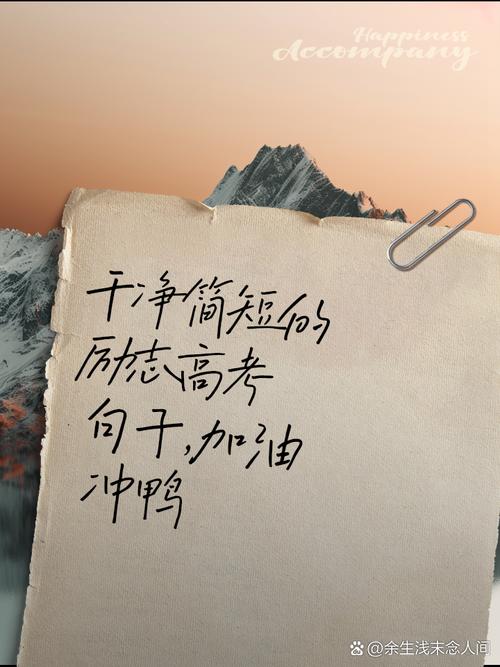 Happiness
Accompany
干净简短的
励志高考
句子,加油
冲鸭
@余生浅末念人间